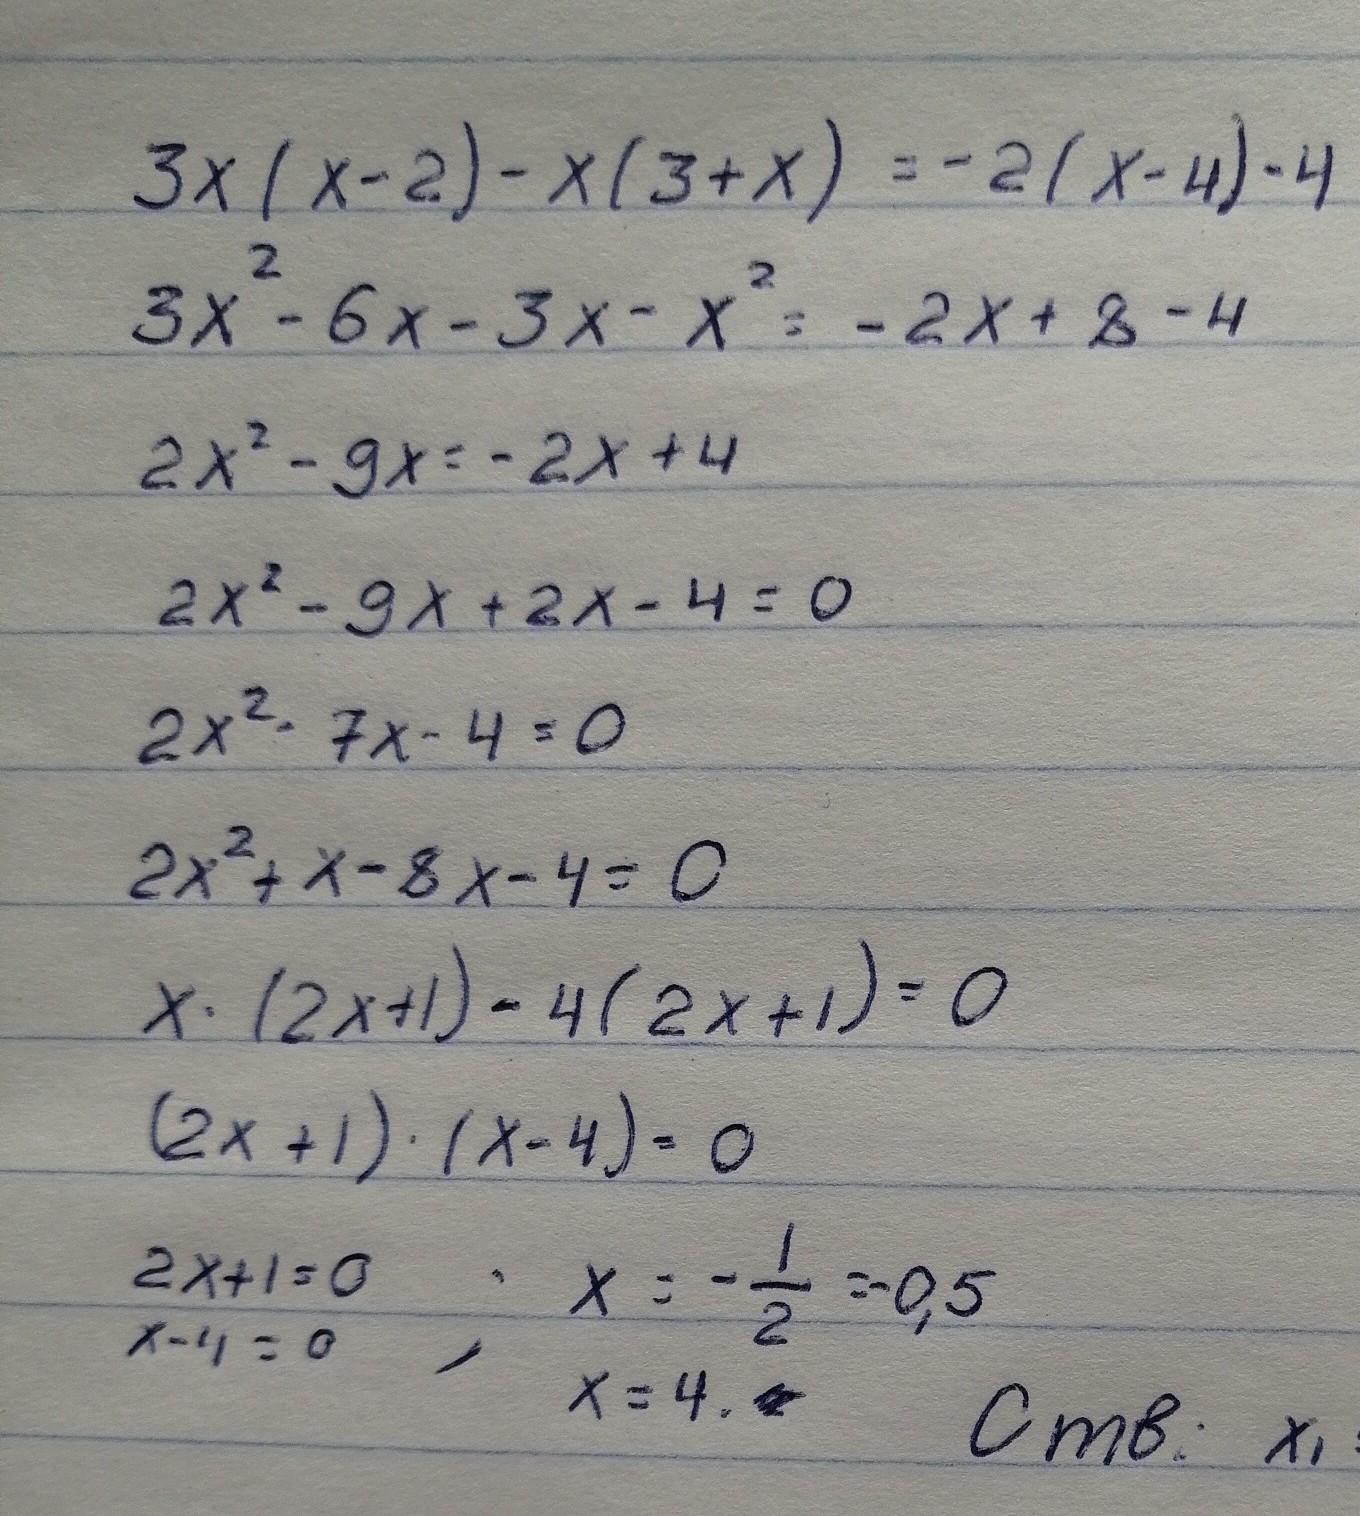 3x(x-2)-x(3+x)=-2(x-4)-4
3x²-6x-3x-x²=-2x+8-4
2x²-9x=-2x+4
2x²-9x+2x-4=0
2x²-7x-4=0
2x²+x-8x-4=0
x·(2x+1)-4(2x+1)=0
(2x+1)·(x-4)=0
2x+1=0 x=-1/2=-0,5
x-4=0, x=4.
Отв: x₁=